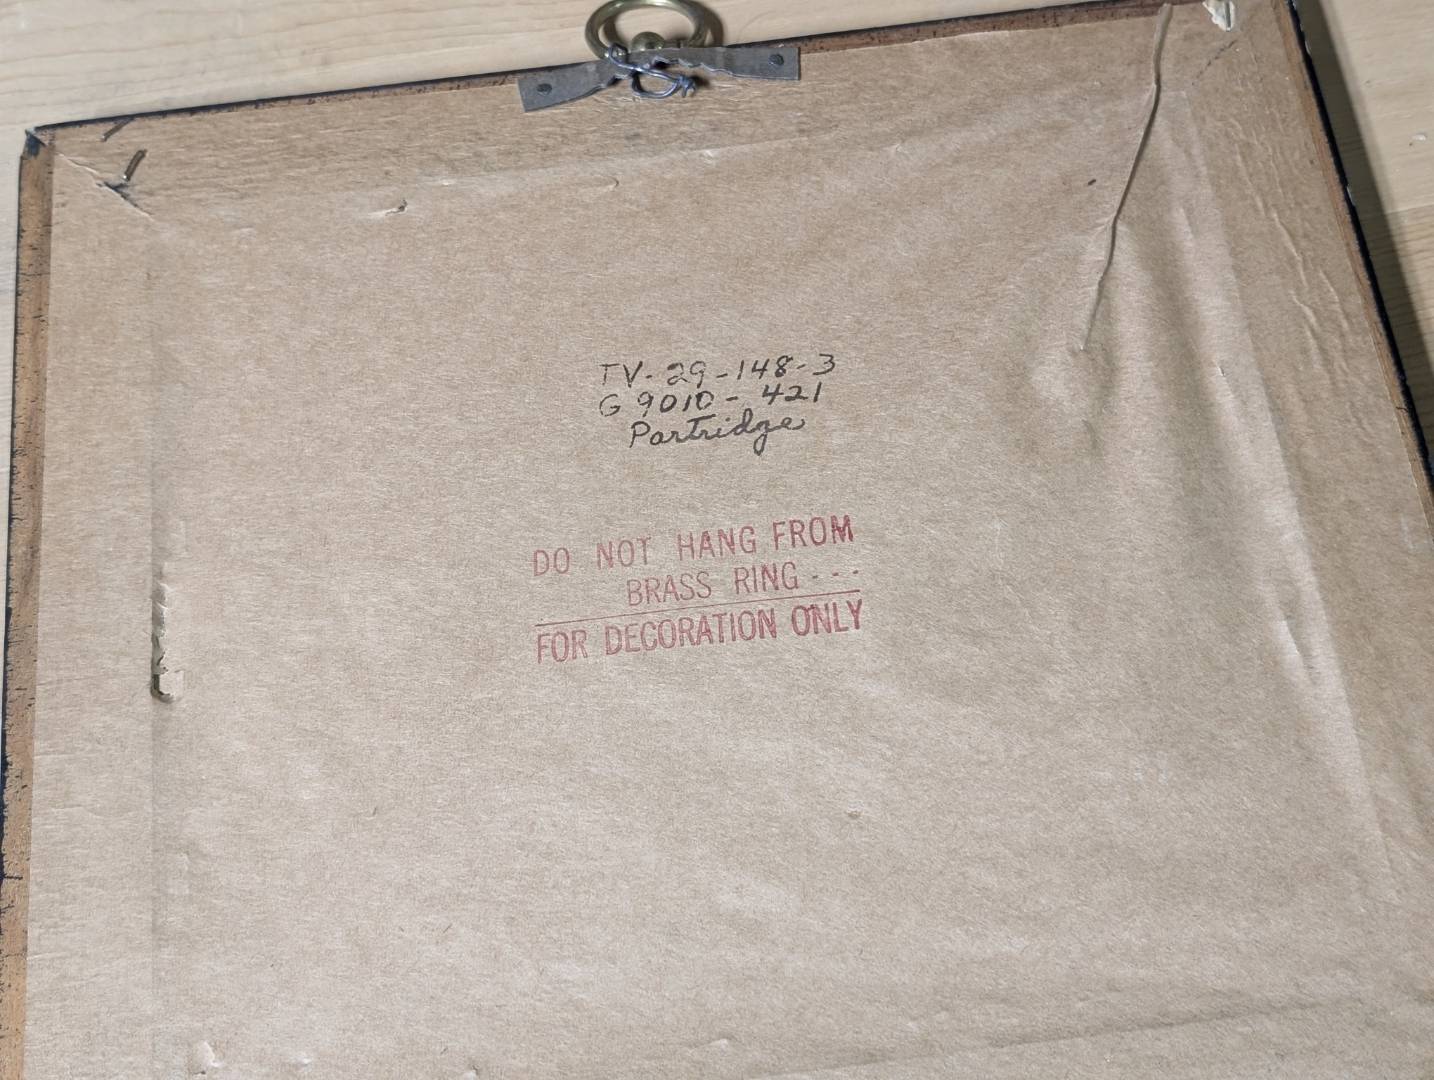 TV-29-148-3
G 9010-421
Partridge
DO NOT HANG FROM
BRASS RING---
FOR DECORATION ONLY